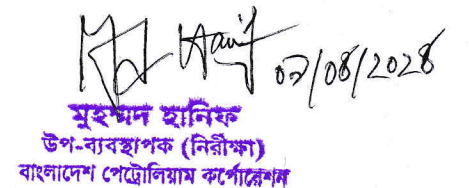 ০৯/০৪/২০২৪
মুহম্মদ হানিফ
উপ-ব্যবস্থাপক (নিরীক্ষা)
বাংলাদেশ পেট্রোলিয়াম কর্পোরেশন